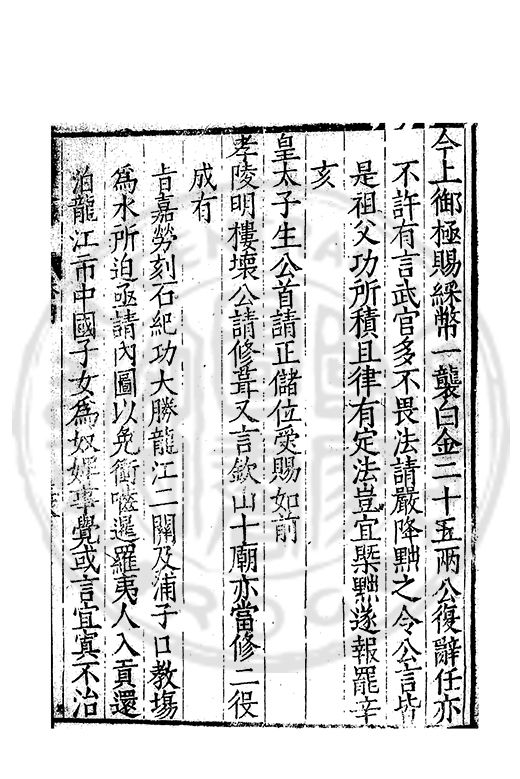 今上御極賜綵幣一襲白金二十五兩公復辭任亦
不許有言武官多不畏法請嚴降黜之令公言皆
是祖父功所積且律有定法豈宜槩黜遂報罷辛
亥
皇太子生公首請正儲位受賜如前
孝陵明樓壞公請修葺又言欽山十廟亦當修二役
成有
旨嘉勞刻石紀功大勝龍江二關及浦子口教塲
為水所迫亟請內圖以免衝囓暹羅夷人入貢還
泊龍江市中國子女為奴婢事覺或言宜寘不治